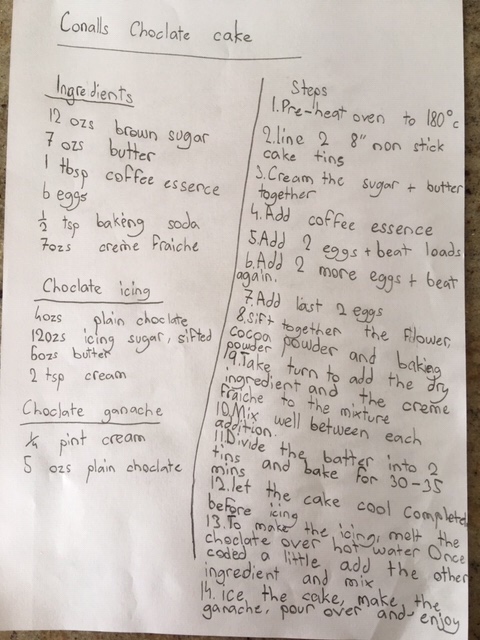 Conalls Choclate cake
Ingredients
12 ozs brown sugar
7 ozs butter
1 tbsp coffee essence
6 eggs
½ tsp bakeing soda
7ozs creme fraiche
Choclate icing
4ozs plain choclate
12ozs icing sugar, sifted
6ozs butter
2 tsp cream
Choclate ganache
¼ pint cream
5 ozs plain choclate
Steps
1.Pre-heat oven to 180°c
2.line 2 8" non stick
cake tins
3.Cream the sugar + butter
together
4.Add coffee essence
5.Add 2 eggs + beat loads
6.Add 2 more eggs + beat
again.
7.Add last 2 eggs
8.Sift together the fllower,
cocoa powder and baking
powder
9.Take turn to add the dry
ingredient and the creme
fraiche to the mixture
10.Mix well between each
addition.
11.Divide the batter into 2
tins and bake for 30-35
mins
12.let the cake cool completed
before icing
13.To make the icing, melt the
choclate over hot water Once
coded a little, add the other
ingredient and mix
14. Ice, the cake, make the
ganache, pour over and enjoy